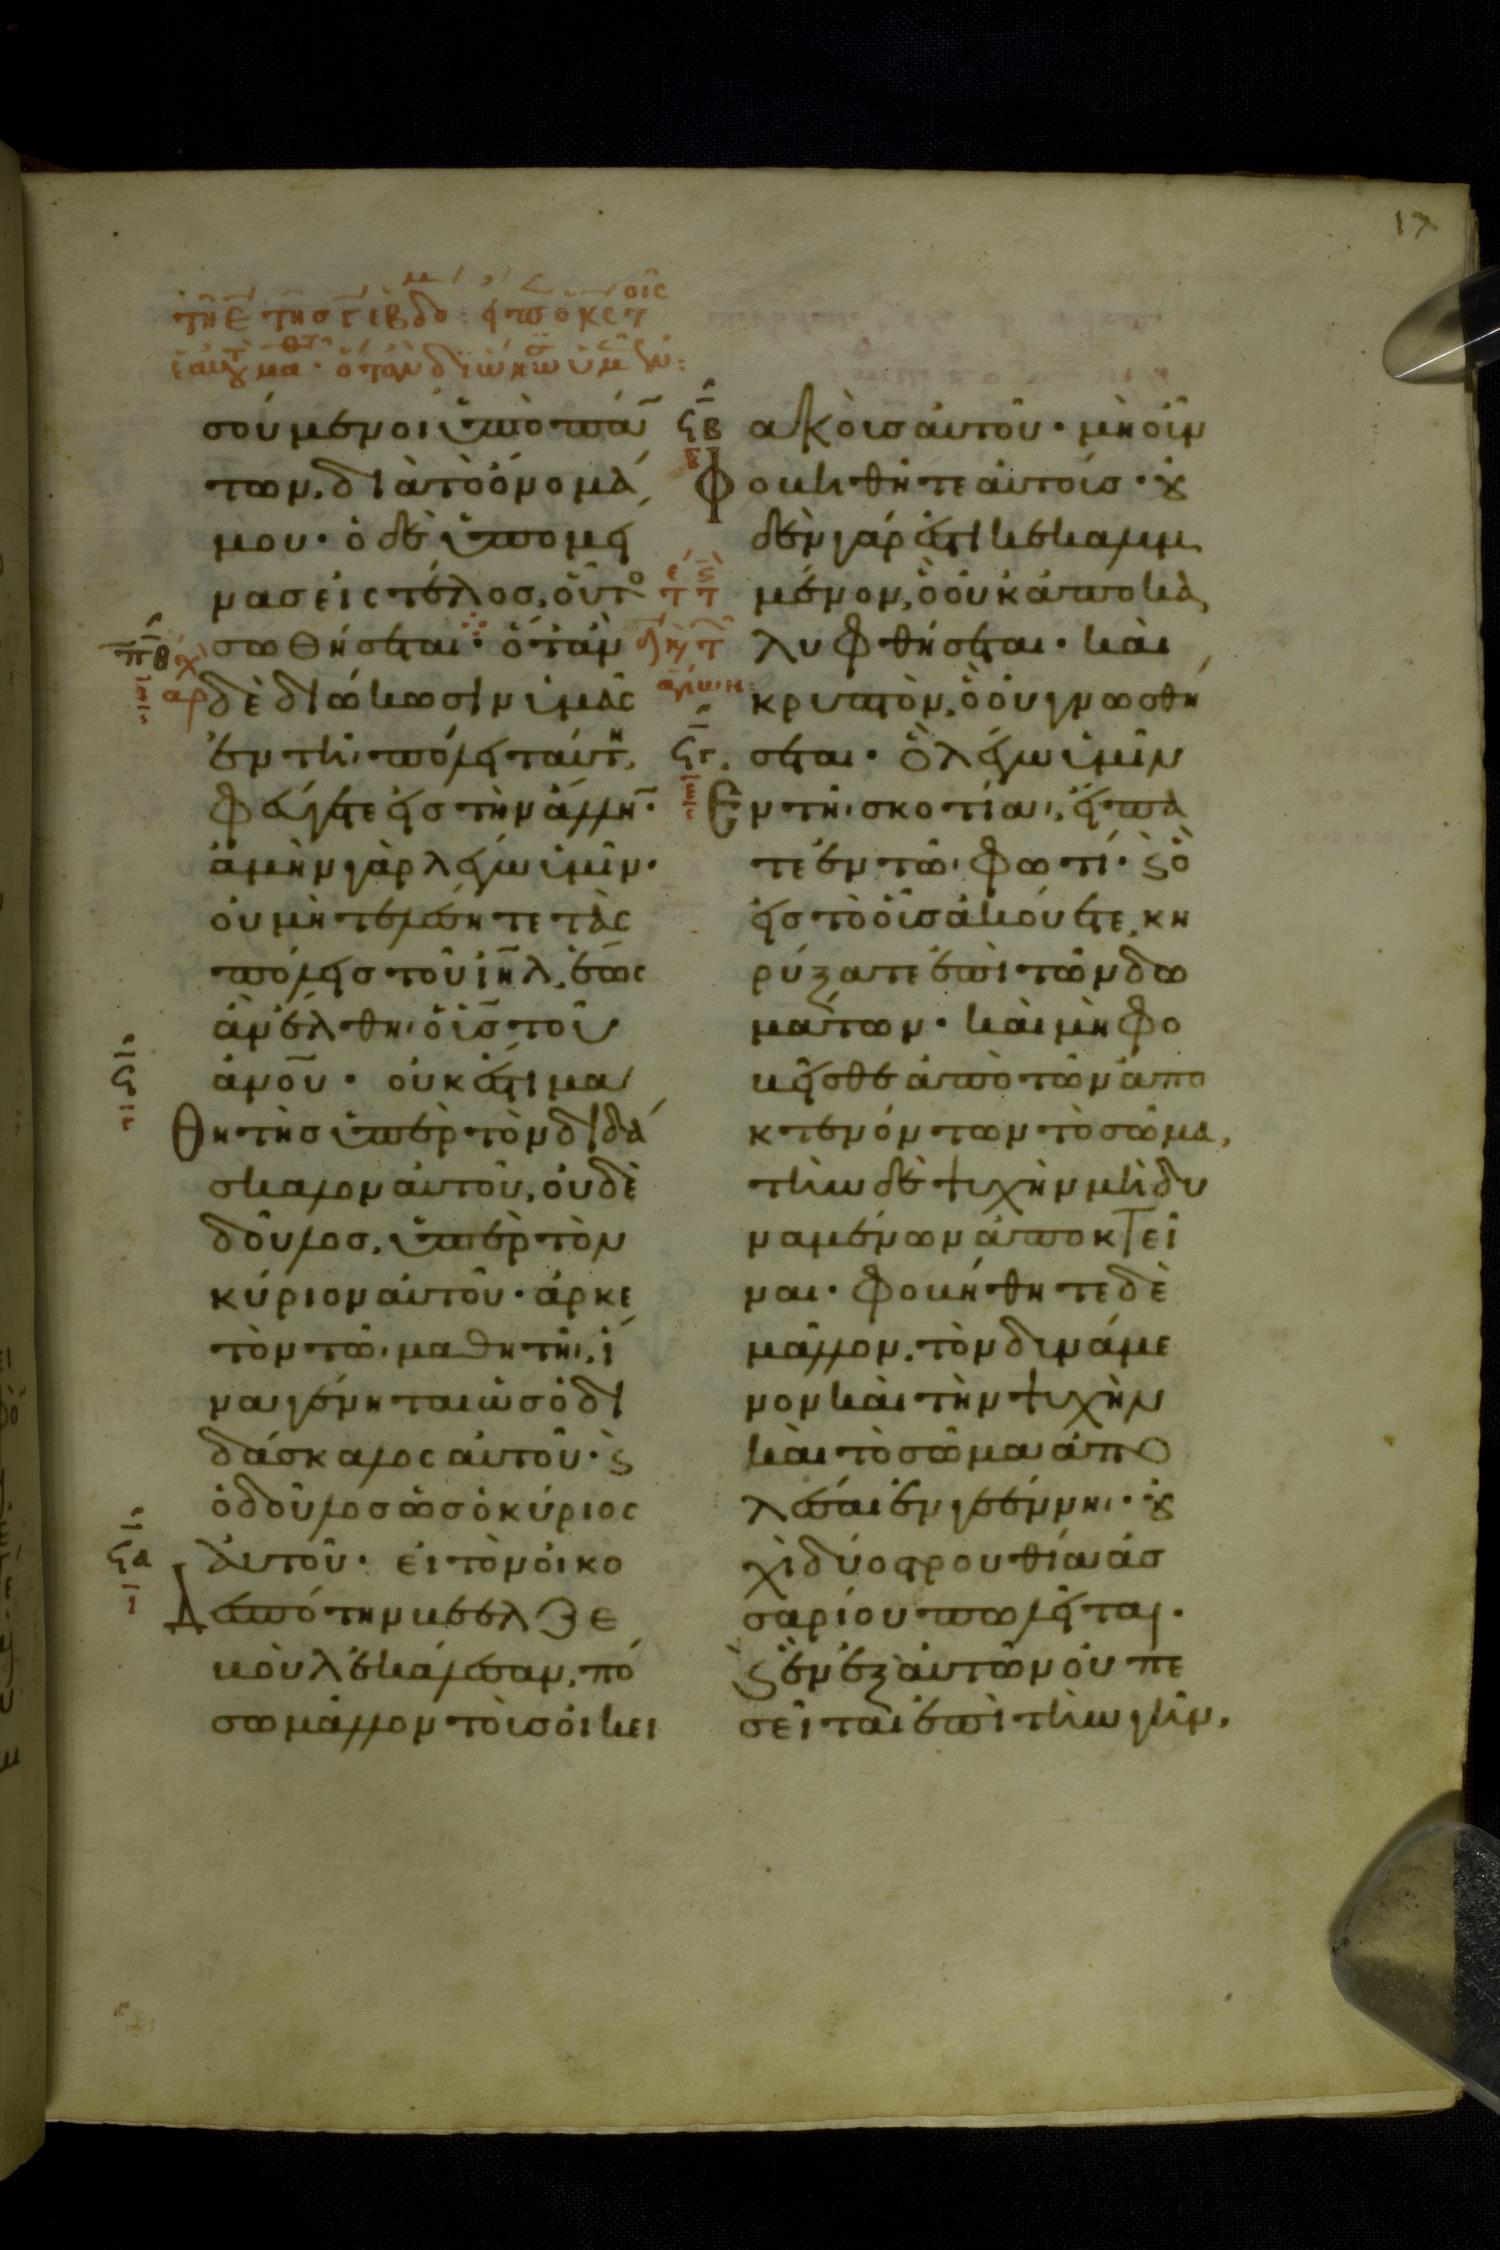 σούμενοι ὑπὸ πάν
των, διὰ τὸ ὄνομά
μου· ὁ δὲ ὑπομεί
νας εἰς τέλος, οὗτο
σωθήσεται· ὅταν
δὲ διώκωσιν ὑμᾶς
ἐν τῆι πόλει ταύτη,
φεύγετε εἰς τὴν ἄλλην·
ἀμὴν γὰρ λέγω ὑμῖν·
οὐ μὴ τελέσητε τὰς
πόλεις τοῦ ιηλ, ἕως
ἂν ἔλθηι ὁ υις τοῦ
ανου· οὐκ ἔστι μα
θητὴς ὑπὲρ τὸν διδά
σκαλον αὐτοῦ, οὐδὲ
δοῦλος, ὑπὲρ τὸν
κύριον αὐτοῦ· ἀρκε
τὸν τῶι μαθητῆι, ἵ
να γένηται ὡς ὁ δι
δάσκαλος αὐτοῦ· ϗ
ὁ δοῦλος ὡς ὁ κύριος
αὐτοῦ· εἰ τὸν οἰκο
δεσπότην βεελζε
βοὺλ ἐκάλεσαν, πό
σω μᾶλλον τοὺς οἰκει
ακοὺς αὐτοῦ· μὴ οὖν
φοβηθῆτε αὐτούς· οὐ
δὲν γάρ ἐστι κεκαλυμ
μένον, ὃ οὐκ ἀποκα
λυφθήσεται· καὶ
κρυπτὸν, ὃ οὐ γνωσθή
σεται· ὃ λέγω ὑμῖν
ἐν τῆι σκοτίαι, εἴπα
τε ἐν τῶι φωτί· ϗ ὃ
εἰς τὸ οὖς ἀκούετε, κη
ρύξατε ἐπὶ τῶν δω
μάτων· καὶ μὴ φο
βεῖσθε ἀπὸ τῶν ἀπο
κτενόντων τὸ σῶμα,
τὴν δὲ ψυχὴν μὴ δυ
ναμένων ἀποκτεῖ
ναι· φοβήθητε δὲ
μᾶλλον, τὸν δυνάμε
νον καὶ τὴν ψυχὴν
καὶ τὸ σῶμα ἀπο
λέσαι ἐν γεέννηι· οὐ
χὶ δύο στρουθία ἀσ
σαρίου πωλεῖται·
ϗ ἓν ἐξ αὐτῶν οὐ πε
σεῖται ἐπὶ τὴν γῆν,